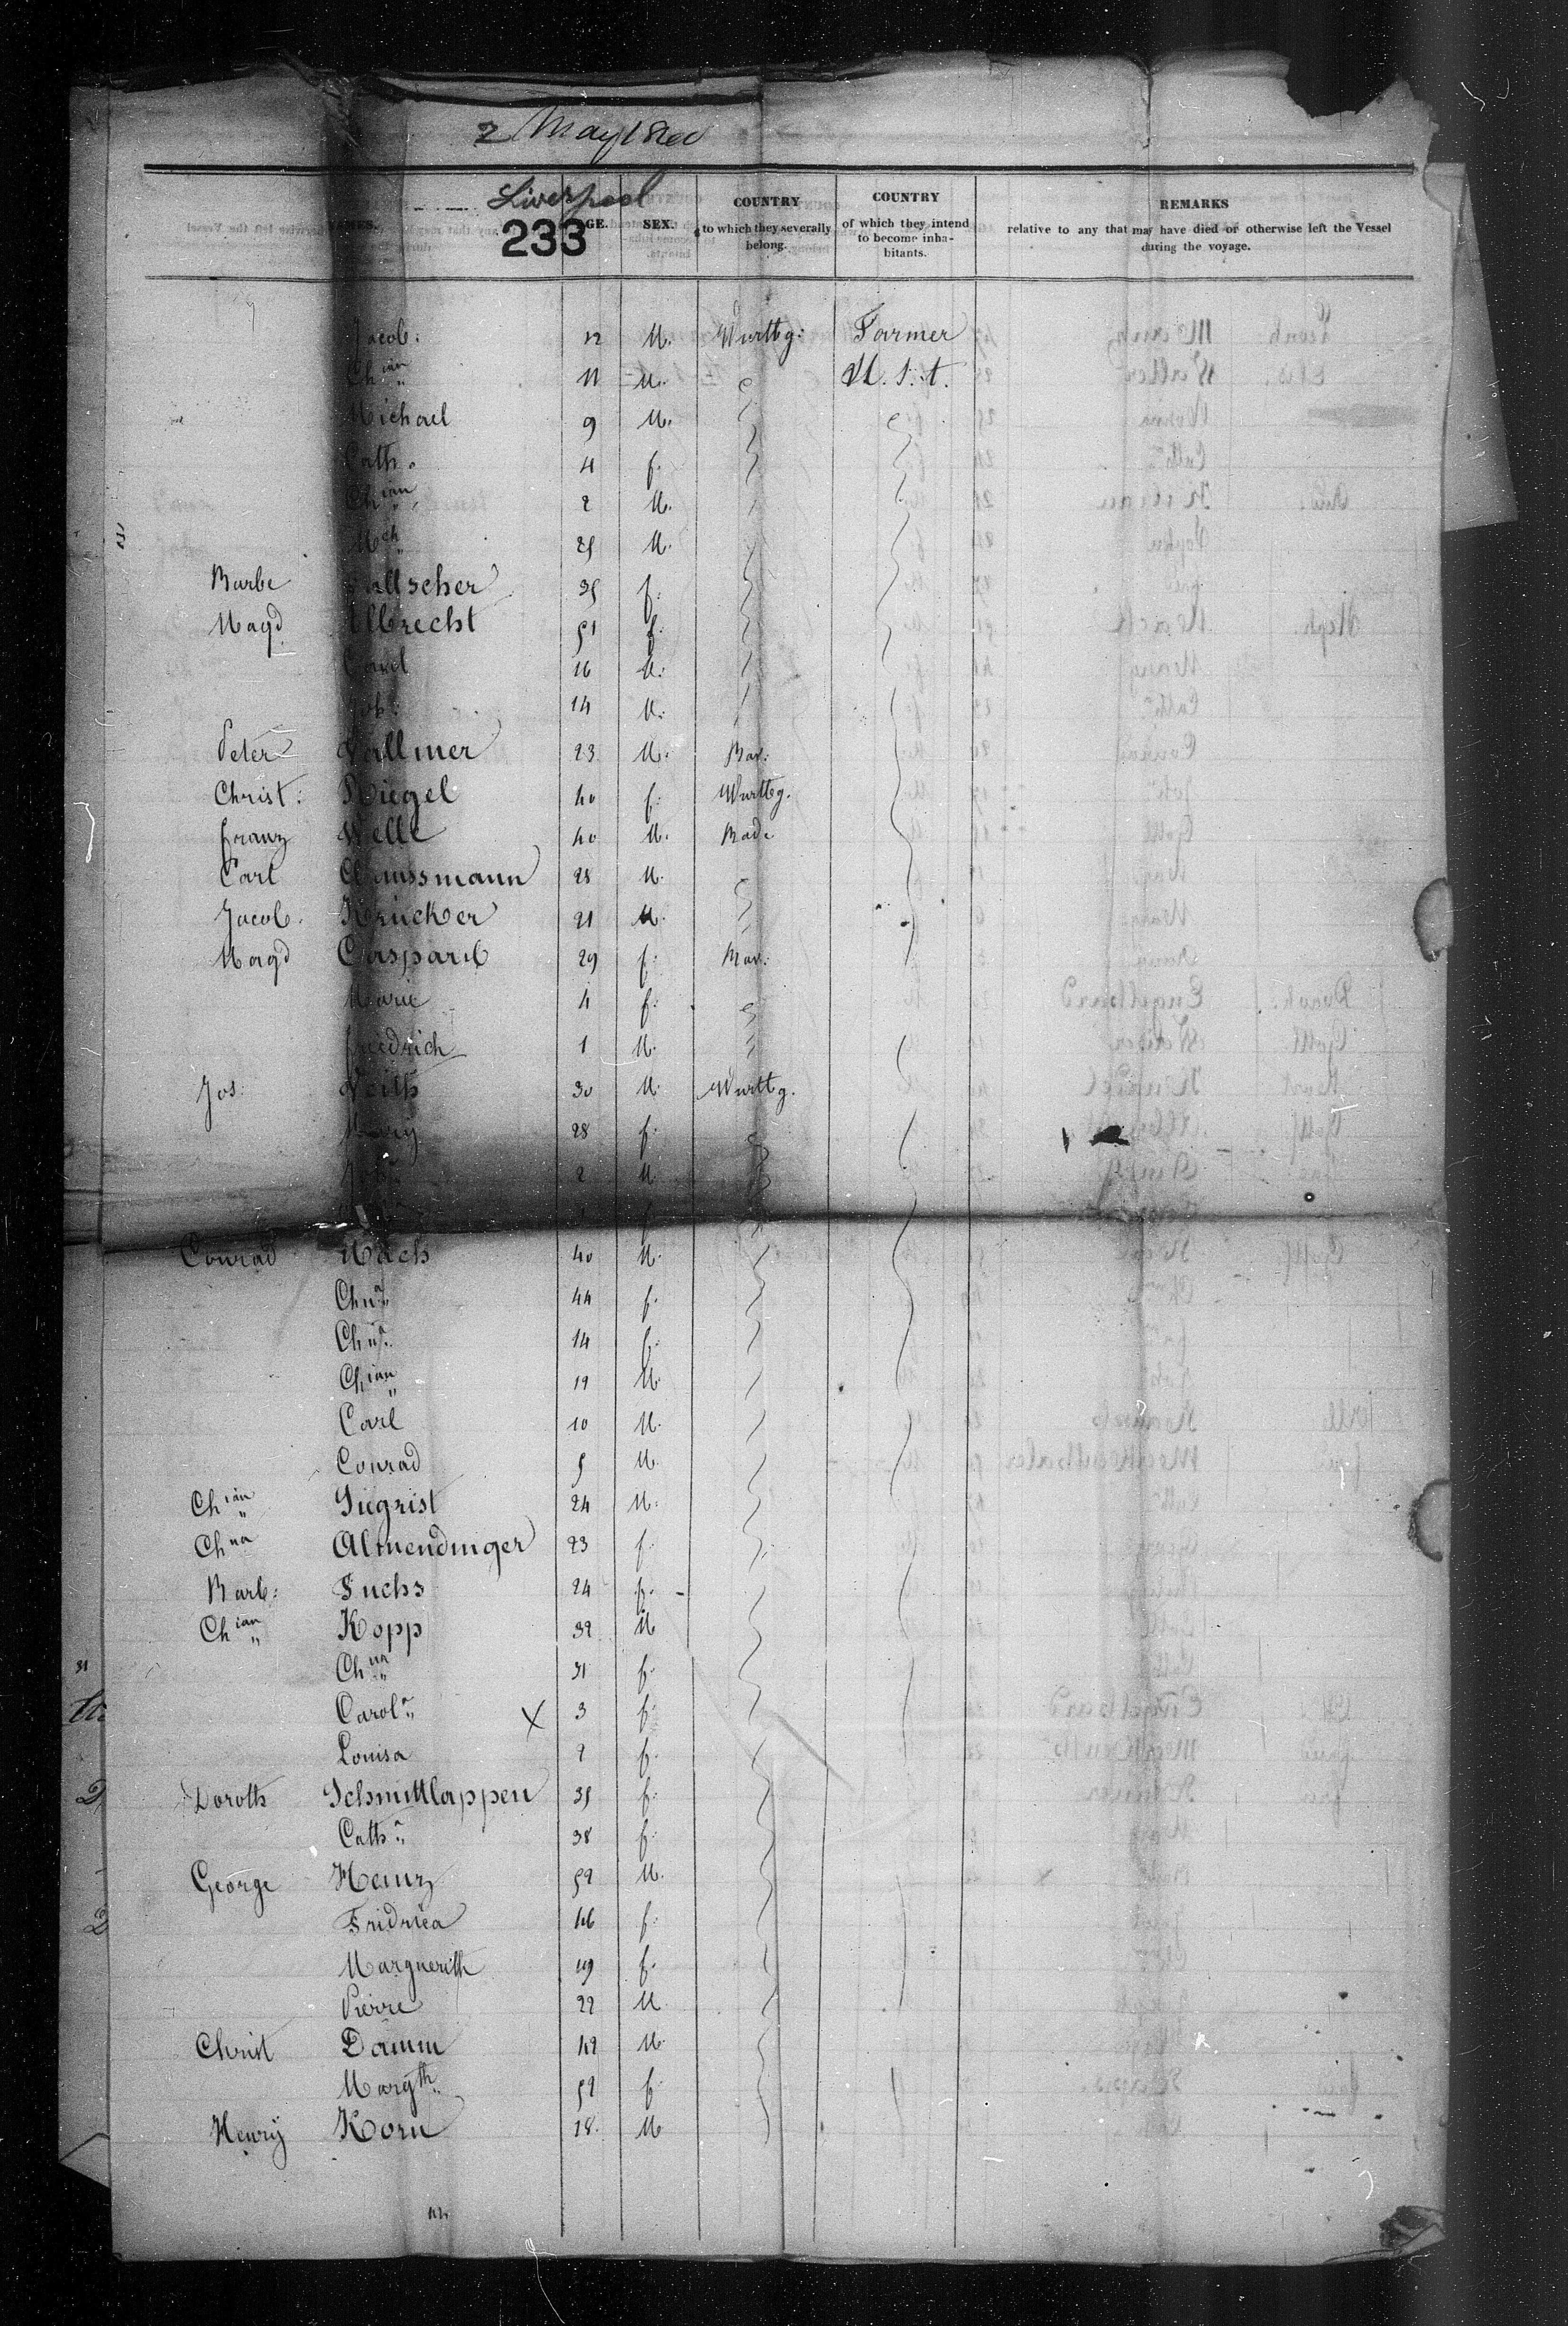 2 May 1860
Liverpool
233
NAMES. AGE. SEX. COUNTRY to which they severally belong. COUNTRY of which they intend to become inhabitants. REMARKS relative to any that may have died or otherwise left the Vessel during the voyage.
Jacob: 12 M. Wurttg: Farmer
Ch ian „ 11 M. U. S. t.
Michael 9 M.
Cath. 4 f.
Ch ian „ 2 M.
M ch 25 M.
Barbe 35 f.
Magd Albrecht 51 f.
Carl 16 M.
Joh: 14 M.
Peter Vallmer 23 M. Bav:
Christ: Riegel 40 f. Wurttg.
franz Welle 40 M. Bade
Carl Claussmann 28 M.
Jacob. Krucker 21 M.
Magd Casparie 29 f. Bav:
Marie 4 f.
friedrich 1 M.
Jos: Veith 30 M. Wurttg.
Mary 28 f.
2 M
Conrad Mach 40 M.
Chna „ 44 f.
Chna „ 14 f.
Chian „ 19 M.
Carl 10 M.
Conrad 5 M.
Ch ian „ Siegrist 24 M.
Ch na Almendinger 23 f.
Barb: Fuchs 24 f.
Ch ian „ Kopp 32 M
31 Ch na „ 31 f.
Carola „ X 3 f.
Louisa 2 f.
Doroth Schmittlappen 35 f.
Catha „ 38 f.
George Heinz 52 M.
Fridrica 46 f.
Marguerith 19 f.
Pierre 22 M
Christ Damm 42 M.
Margth „ 52 f.
Henry Korn 28. M